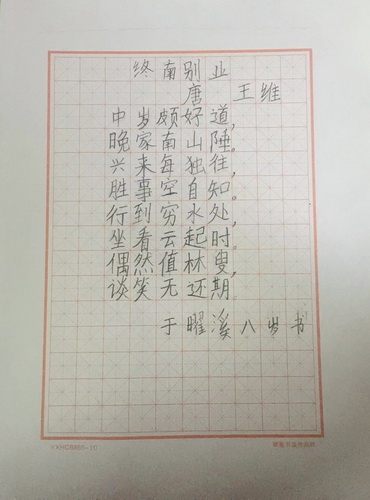 终南别业
唐 王维
中岁颇好道，
晚家南山陲。
兴来每独往，
胜事空自知。
行到穷水处，
坐看云起时。
偶然值林叟，
谈笑无还期
于曜溪八岁书